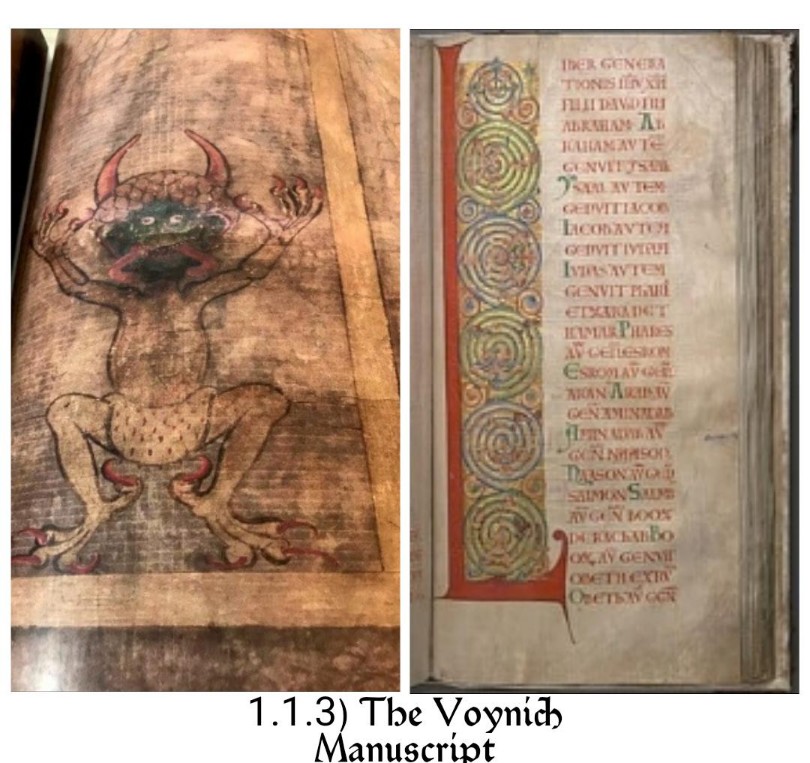 LIBER GENERA
TIONIS
FILII DAVID FILII
ABRAHAM AB
RAHAM AVTE
GENVIT YSAAC
YSAAC AVTEM
GENVIT IACOB
IACOB AVTEM
GENVIT IVDAM
IVDAS AVTEM
GENVIT
ET ZARA DE T
HAMAR PHARES
AV̄ GEN̄ ESROM
ESROM AV̄ GEN̄
ARAN ARAN AV̄
GEN̄ AMINADAB
AMINADAB AV̄
GEN̄ NAASON
NAASON AV̄ GEN̄
SALMON
AV̄ GEN̄ BOOZ
DE RACHAB BO
OZ AV̄ GENVIT
OBETH EX RV
OBETH AV̄ GEN̄
1.1.3) The Voynich
Manuscript